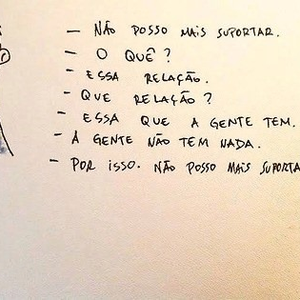 — NÃO POSSO MAIS SUPORTAR.
— O QUÊ?
- ESSA RELAÇÃO.
- QUE RELAÇÃO?
- ESSA QUE A GENTE TEM.
- A GENTE NÃO TEM NADA.
- POR ISSO. NÃO POSSO MAIS SUPORTA